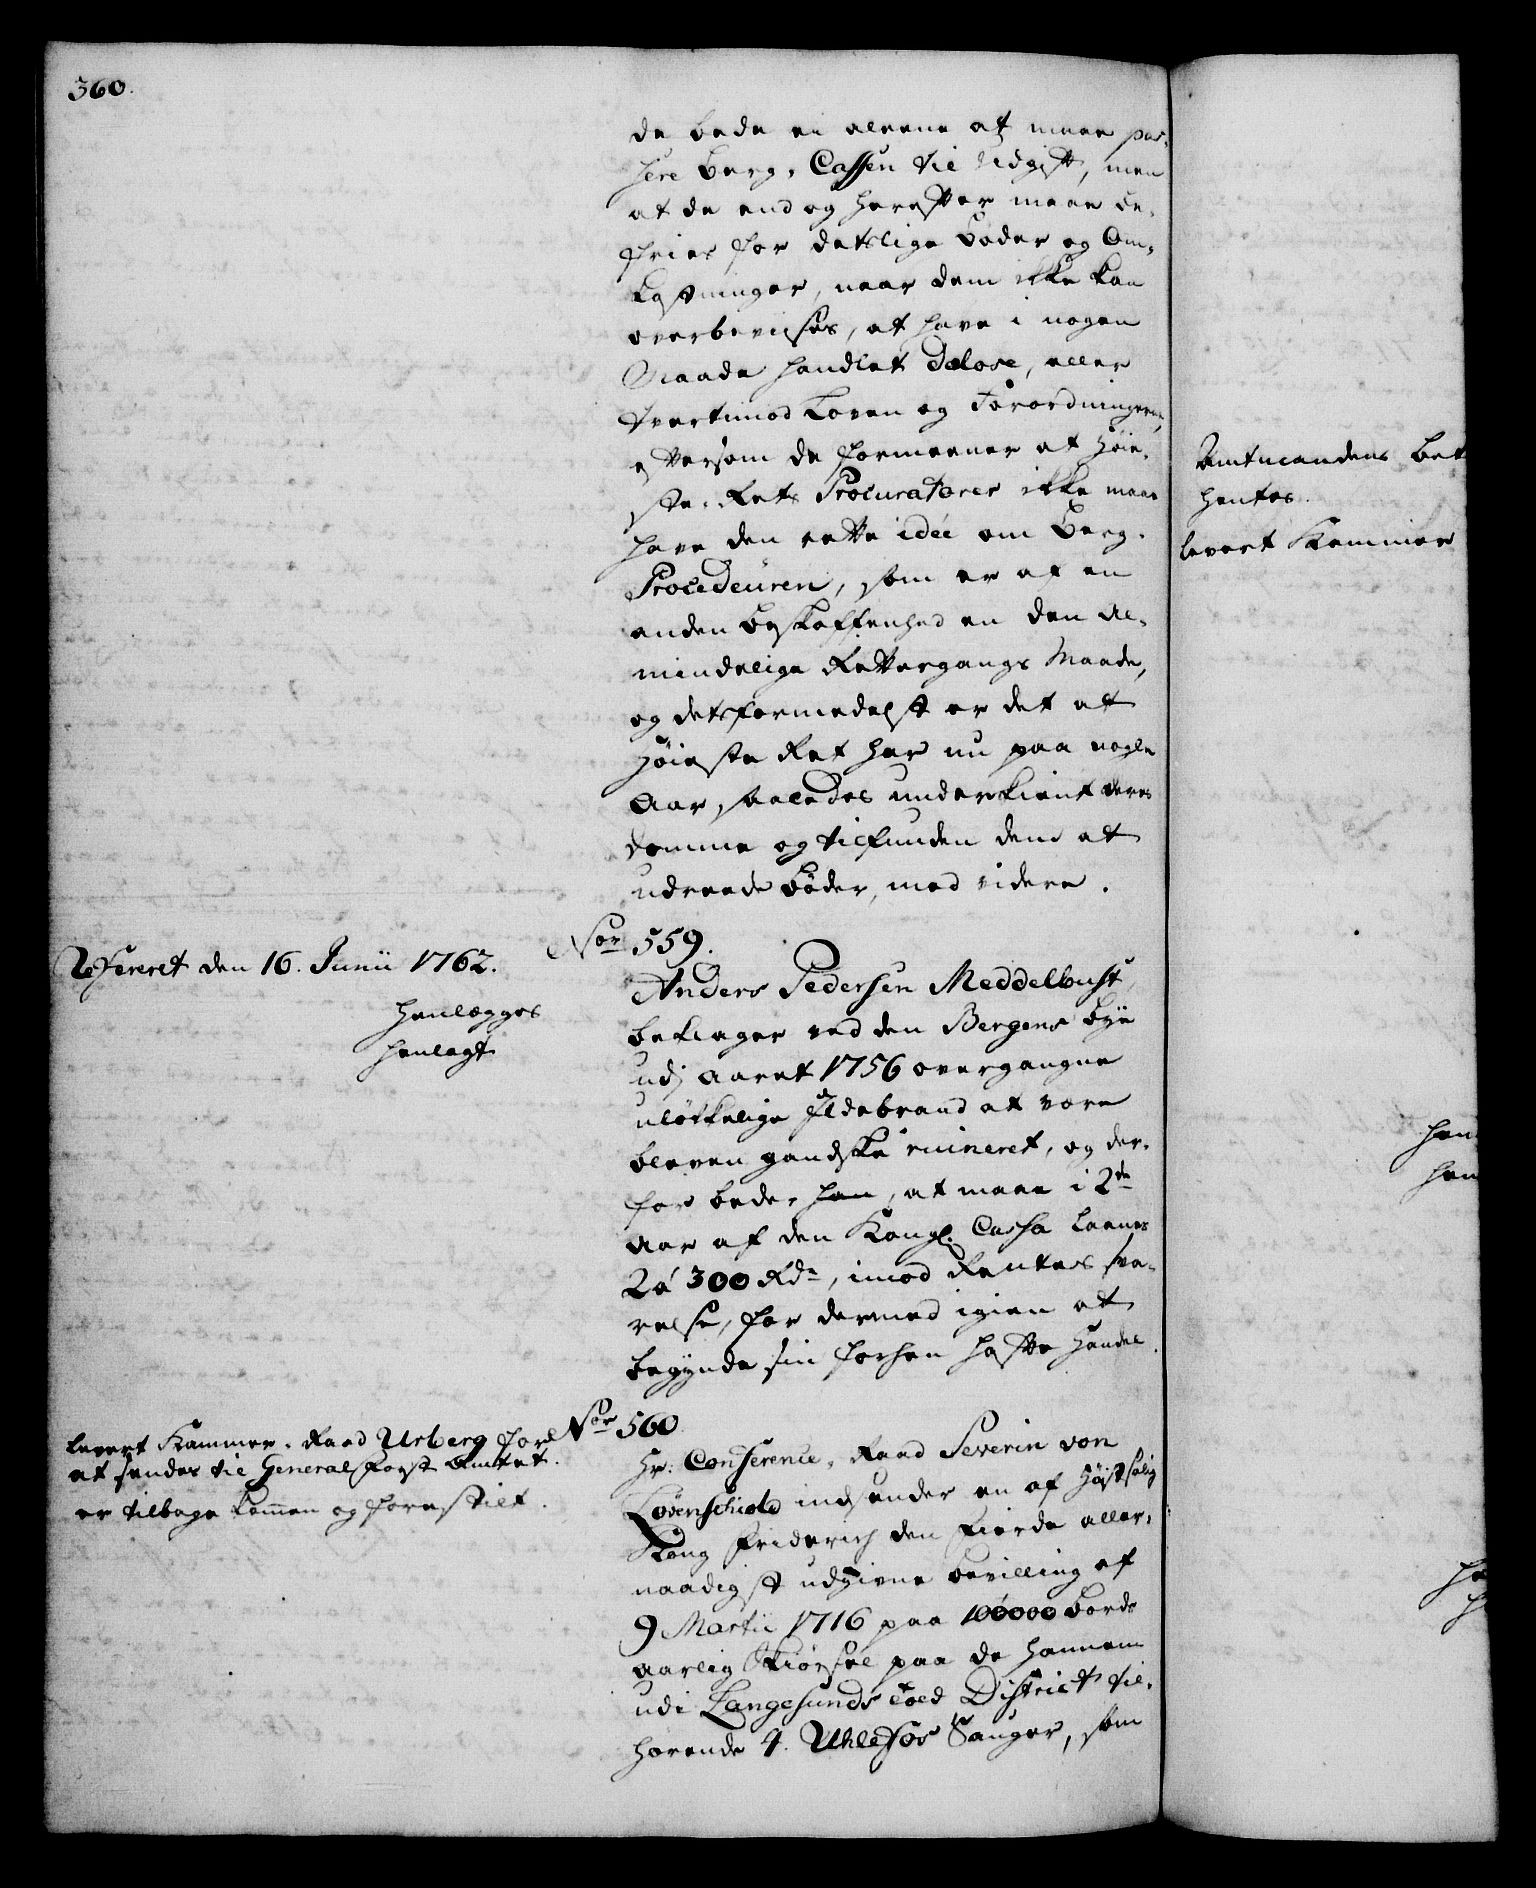 360.
de bede ei aleene at maae pas-
sere Berg-Cassen til Udgift, men
at de end og herefter maae be-
fries for detslige Bøder og Om-
kostninger, naar dem ikke kan
overbeviises, at have i nogen
Maade handlet dolose, eller
tvertimod Loven og Forordningerne,
eftersom de formeener at Høie-
ste-Rets Procuratorer ikke maae
have den rette idée om Berg-
Procedeuren, som er af en
anden Beskaffenhed en den Al-
mindelige Rettergangs Maade,
og detsformedelst er det at
Høieste Ret har nu paa nogle
Aar saaledes underkient deres
Domme og tilfunden dem at
udreede Bøder, med videre.
Refereret den 16. Junii 1762.
henlægges
henlagt
Nor 559.
Anders Pedersen Meddelbust,
beklager ved den Bergens Bye
udj Aaret 1756 overgangne
ulökkelige Ildebrand at være
bleven gandske ruineret, og der-
for beder han, at maae i 2de
Aar af den Kongl. Cassa laanes
2 á 300 Rdr, imod Rentes sva-
relse, for dermed igien at
begynde sin forhen hafte Handel.
levert Kammer-Raad Urberg for
at sendes til General Forst Amtet.
er tilbage kommen og forestilt.
Nor 560
Hr: Conference-Raad Severin von
Løvenschiold indsender en af Høistsalig
Kong Friderich den Fierde aller-
naadigst udgivne Bevilling af
9 Martii 1716 paa 100000 Bords
aarlig Skiørsel paa de hannem
udi Langesunds Told District til-
hørende 4. Uhlefos Sauger, som
Amtmandens Bet
hentes.
levert Kammer